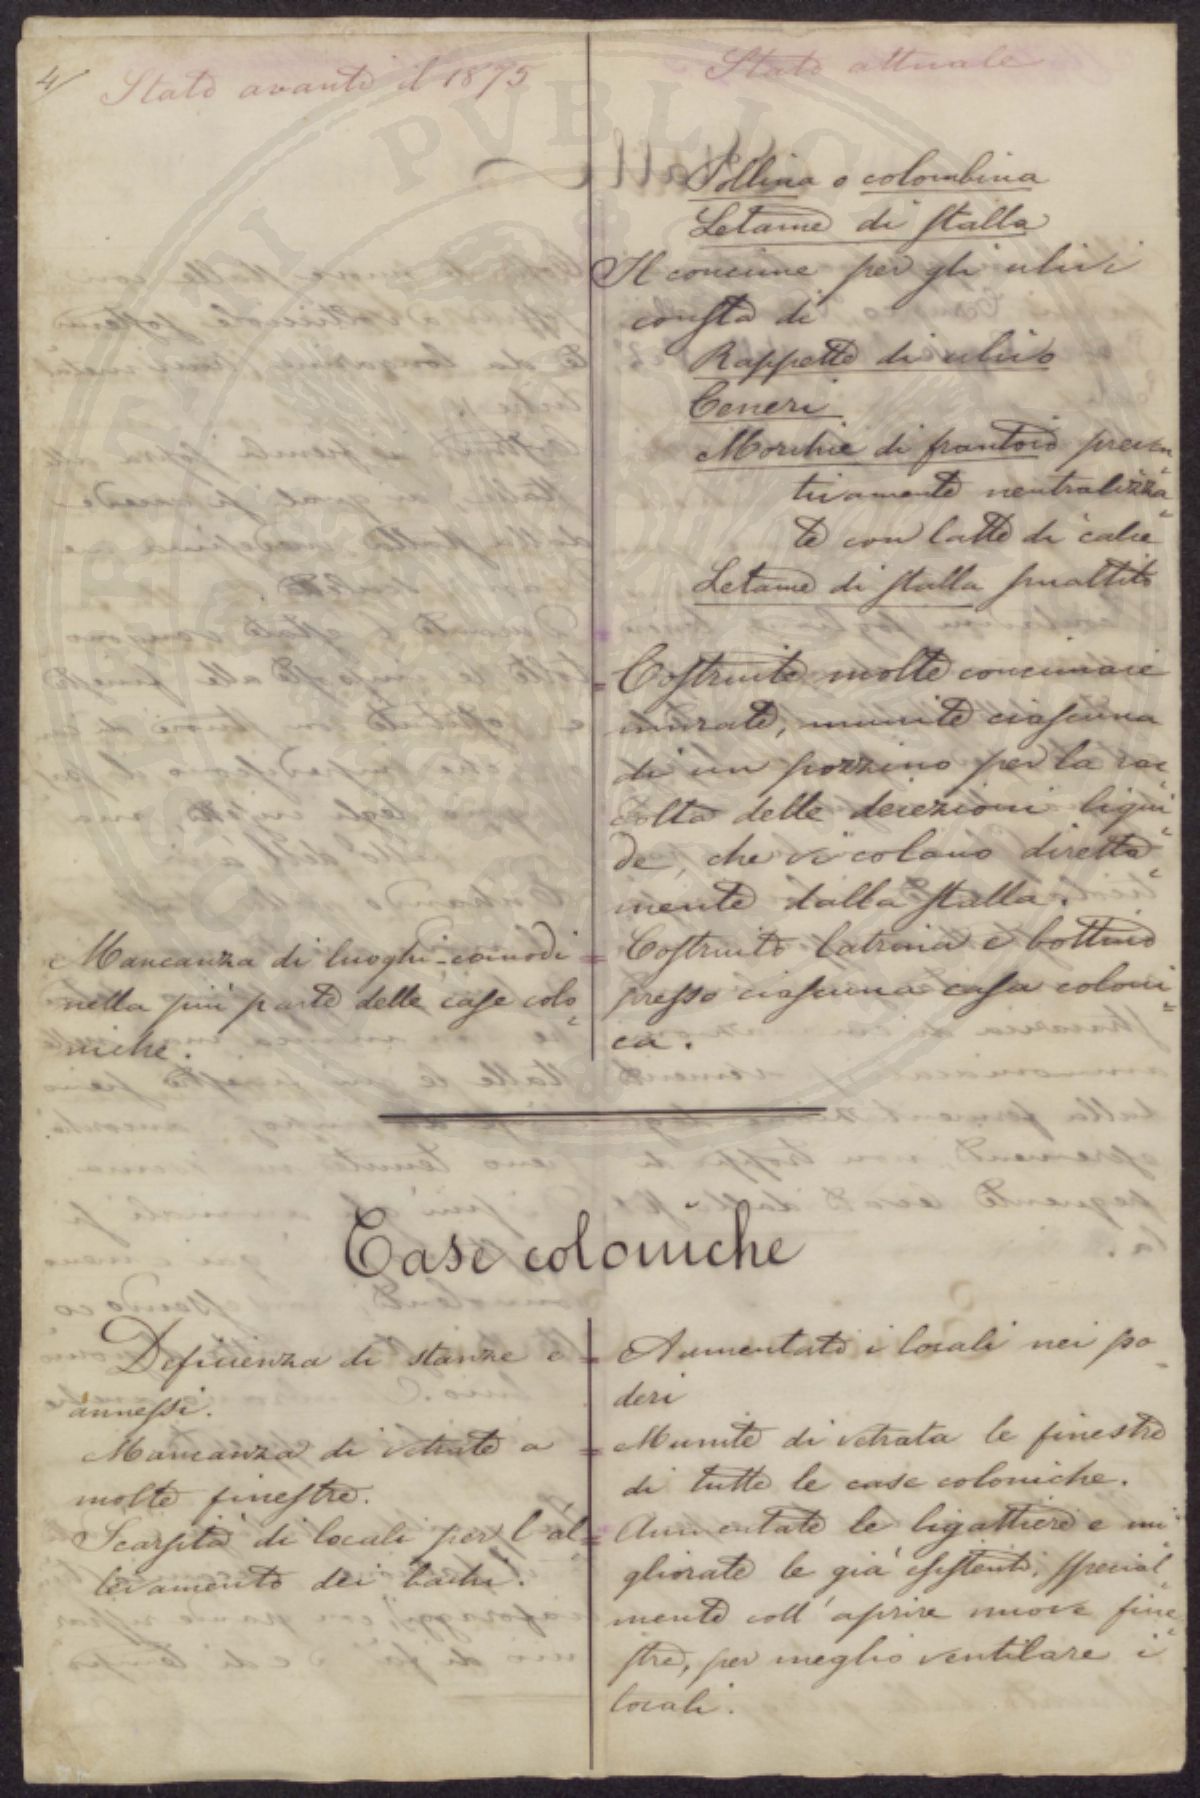 4/
Stato avanti il 1875
Stato attuale
Pollina o colombina
Letame di stalla
Il concime per gli ulivi
consta di
Rappetto di ulivo
Ceneri
Morchie di frantoio preven
tivamente neutralizza=
te con latte di calce
Letame di stalla smaltito
= Costruite molte concimaie
murate, munite ciascuna
di un pozzino per la rac=
colta delle deiezioni liqui=
de, che vi colano diretta=
mente dalla stalla.
Mancanza di luoghi comodi
nella più parte delle case colo=
niche.
= Costruito latrina e bottino
presso ciascuna casa coloni=
ca.
Case coloniche
Deficienza di stanze e
annessi.
Mancanza di vetrate a
molte finestre.
Scarsità di locali per l'al=
levamento dei bachi.
= Aumentato i locali nei po=
deri
= Munite di vetrata le finestre
di tutte le case coloniche.
= Aumentate le bigattiere e mi=
gliorate le già esistenti, special=
mente coll'aprire nuove fine=
stre, per meglio ventilare i
locali.